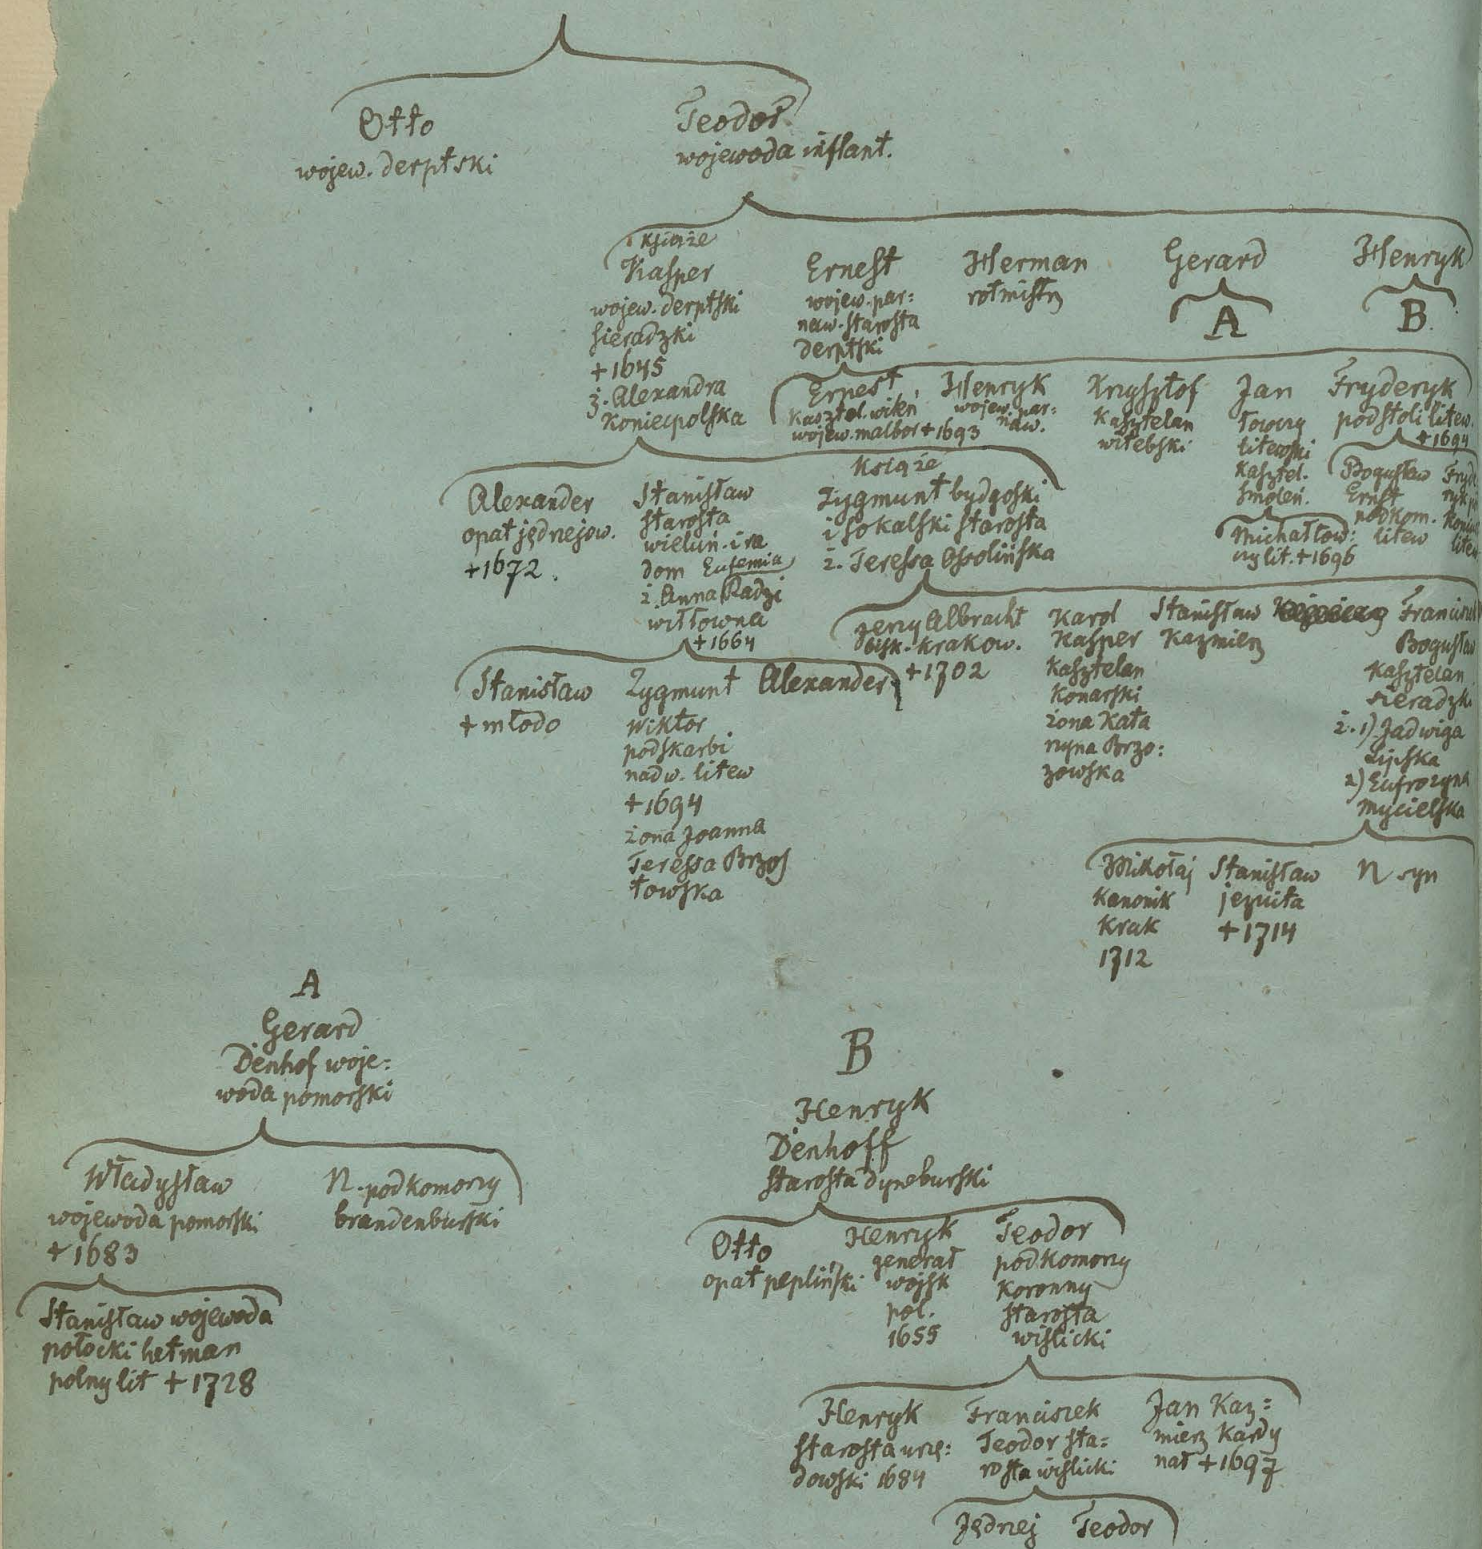 Otto
wojew. derptski
Teodor
wojewoda inflant.
książe
Kasper
wojew. derptski
sieradzki
+ 1645
ż. Alexandra
Koniecpolska
Ernest
wojew. par=
naw. starosta
derptski
Herman
rotmistrz
Gerard
A
Henryk
B.
Ernest
kasztel. wileń
wojew. malbor + 1693
Henryk
wojew. par=
naw.
Krzysztof
kasztelan
witebski
Jan
łowczy
litewski
kasztel.
smoleń.
Fryderyk
podstoli litew.
+ 1694
Bogusław
Ernst
podkom.
litew
Michał łow:
czy lit. + 1696
Alexander
opat jędrzejow.
+ 1672.
Stanisław
starosta
wieluń. i ra
dom Eufemia
ż. Anna Radzi
wiłłowna
+ 1664
Książe
Zygmunt bydgoski
i sokalski starosta
ż. Teressa Ossolińska
Jerzy Albracht
bisk. krakow.
+ 1702
Karol
Kasper
kasztelan
konarski
żona Kata
rzyna Brzo:
zowska
Stanisław
Kazmierz
Bogusław
kasztelan
sieradzki
ż. 1) Jadwiga
Lipska
2) Eufrozyna
Mycielska
Stanisław
+ młodo
Zygmunt
Wiktor
podskarbi
nadw. litew
+ 1694
żona Joanna
Teressa Brzos
towska
Alexander
Mikołaj
kanonik
krak
1712
Stanisław
jezuita
+ 1714
N syn
A
Gerard
Denhof woje=
woda pomorski
Władysław
wojewoda pomorski
+ 1683
N. podkomorzy
brandenburski
Stanisław wojewoda
połocki hetman
polny lit + 1728
B
Henryk
Denhoff
starosta dyneburski
Otto
opat pepliński
Henryk
generał
wojsk
pol.
1655
Teodor
podkomorzy
koronny
starosta
wislicki
Henryk
starosta urzę=
dowski 1684
Franciszek
Teodor sta=
rosta wislicki
Jan Kaz=
mierz Kardy
nał + 1697
Jędrzej
Teodor